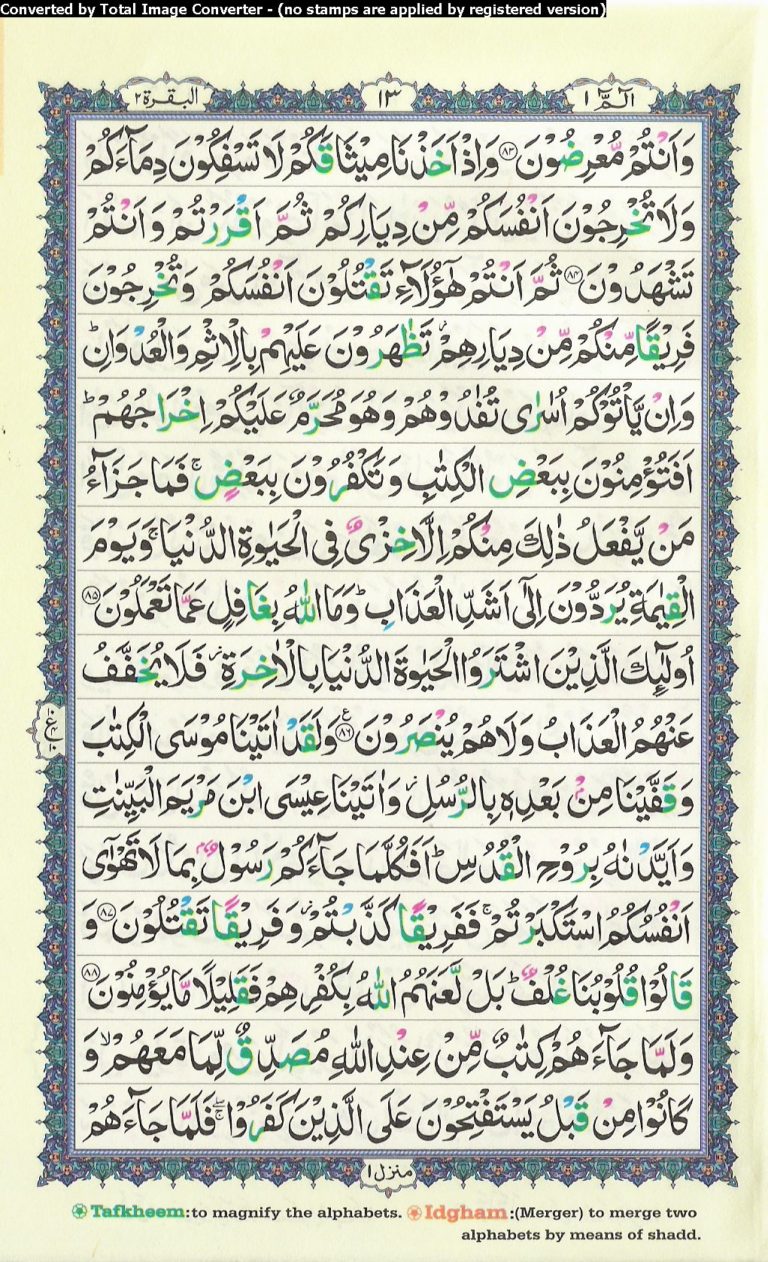 Converted by Total Image Converter - (no stamps are applied by registered version)
الٓمّٓ ١
١٣
البقرة ٢
وَاَنْتُمْ مُّعْرِضُوْنَ ﴿۸۳﴾ وَاِذْ اَخَذْنَا مِيْثَاقَكُمْ لَا تَسْفِكُوْنَ دِمَآءَكُمْ
وَلَا تُخْرِجُوْنَ اَنْفُسَكُمْ مِّنْ دِيَارِكُمْ ثُمَّ اَقْرَرْتُمْ وَاَنْتُمْ
تَشْهَدُوْنَ ﴿۸۴﴾ ثُمَّ اَنْتُمْ هٰٓؤُلَآءِ تَقْتُلُوْنَ اَنْفُسَكُمْ وَتُخْرِجُوْنَ
فَرِيْقًا مِّنْكُمْ مِّنْ دِيَارِهِمْ تَظٰهَرُوْنَ عَلَيْهِمْ بِالْاِثْمِ وَالْعُدْوَانِ ؕ
وَاِنْ يَّاْتُوْكُمْ اُسٰرٰى تُفٰدُوْهُمْ وَهُوَ مُحَرَّمٌ عَلَيْكُمْ اِخْرَاجُهُمْ ؕ
اَفَتُؤْمِنُوْنَ بِبَعْضِ الْكِتٰبِ وَتَكْفُرُوْنَ بِبَعْضٍ ۚ فَمَا جَزَآءُ
مَنْ يَّفْعَلُ ذٰلِكَ مِنْكُمْ اِلَّا خِزْىٌ فِى الْحَيٰوةِ الدُّنْيَا ۚ وَيَوْمَ
الْقِيٰمَةِ يُرَدُّوْنَ اِلٰٓى اَشَدِّ الْعَذَابِ ؕ وَمَا اللّٰهُ بِغَافِلٍ عَمَّا تَعْمَلُوْنَ ﴿۸۵﴾
اُولٰٓئِكَ الَّذِيْنَ اشْتَرَوُا الْحَيٰوةَ الدُّنْيَا بِالْاٰخِرَةِ ؗ فَلَا يُخَفَّفُ
عَنْهُمُ الْعَذَابُ وَلَا هُمْ يُنْصَرُوْنَ ﴿۸۶﴾ وَلَقَدْ اٰتَيْنَا مُوْسَى الْكِتٰبَ
وَقَفَّيْنَا مِنْۢ بَعْدِهٖ بِالرُّسُلِ ؗ وَاٰتَيْنَا عِيْسَى ابْنَ مَرْيَمَ الْبَيِّنٰتِ
وَاَيَّدْنٰهُ بِرُوْحِ الْقُدُسِ ؕ اَفَكُلَّمَا جَآءَكُمْ رَسُوْلٌۢ بِمَا لَا تَهْوٰٓى
اَنْفُسُكُمُ اسْتَكْبَرْتُمْ ۚ فَفَرِيْقًا كَذَّبْتُمْ ؗ وَفَرِيْقًا تَقْتُلُوْنَ ﴿۸۷﴾ وَ
قَالُوْا قُلُوْبُنَا غُلْفٌ ؕ بَلْ لَّعَنَهُمُ اللّٰهُ بِكُفْرِهِمْ فَقَلِيْلًا مَّا يُؤْمِنُوْنَ ﴿۸۸﴾
وَلَمَّا جَآءَهُمْ كِتٰبٌ مِّنْ عِنْدِ اللّٰهِ مُصَدِّقٌ لِّمَا مَعَهُمْ ۙ وَ
كَانُوْا مِنْ قَبْلُ يَسْتَفْتِحُوْنَ عَلَى الَّذِيْنَ كَفَرُوْا ۚ فَلَمَّا جَآءَهُمْ
منزل ١
Tafkheem:to magnify the alphabets. Idgham:(Merger) to merge two
alphabets by means of shadd.